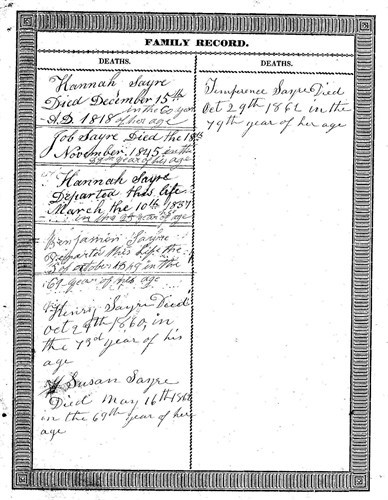 FAMILY RECORD.
DEATHS.
Hannah Sayre
Died December 15th
A.D. 1818 of her age
Job Sayre Died the
November 1845 in the
year of his age
Hannah Sayre
Departed this life
March the 10th 1837
in the year of age
Benjamin Sayre
Departed this Life the
of october in the
year of his age
Henry Sayre Died
Oct 29th 1860, in
the 73d year of his
age
Susan Sayre
Died May 16th
in the 69th year of her
age
DEATHS.
Temperence Sayre Died
Oct 29th 1862 in the
79th year of her age